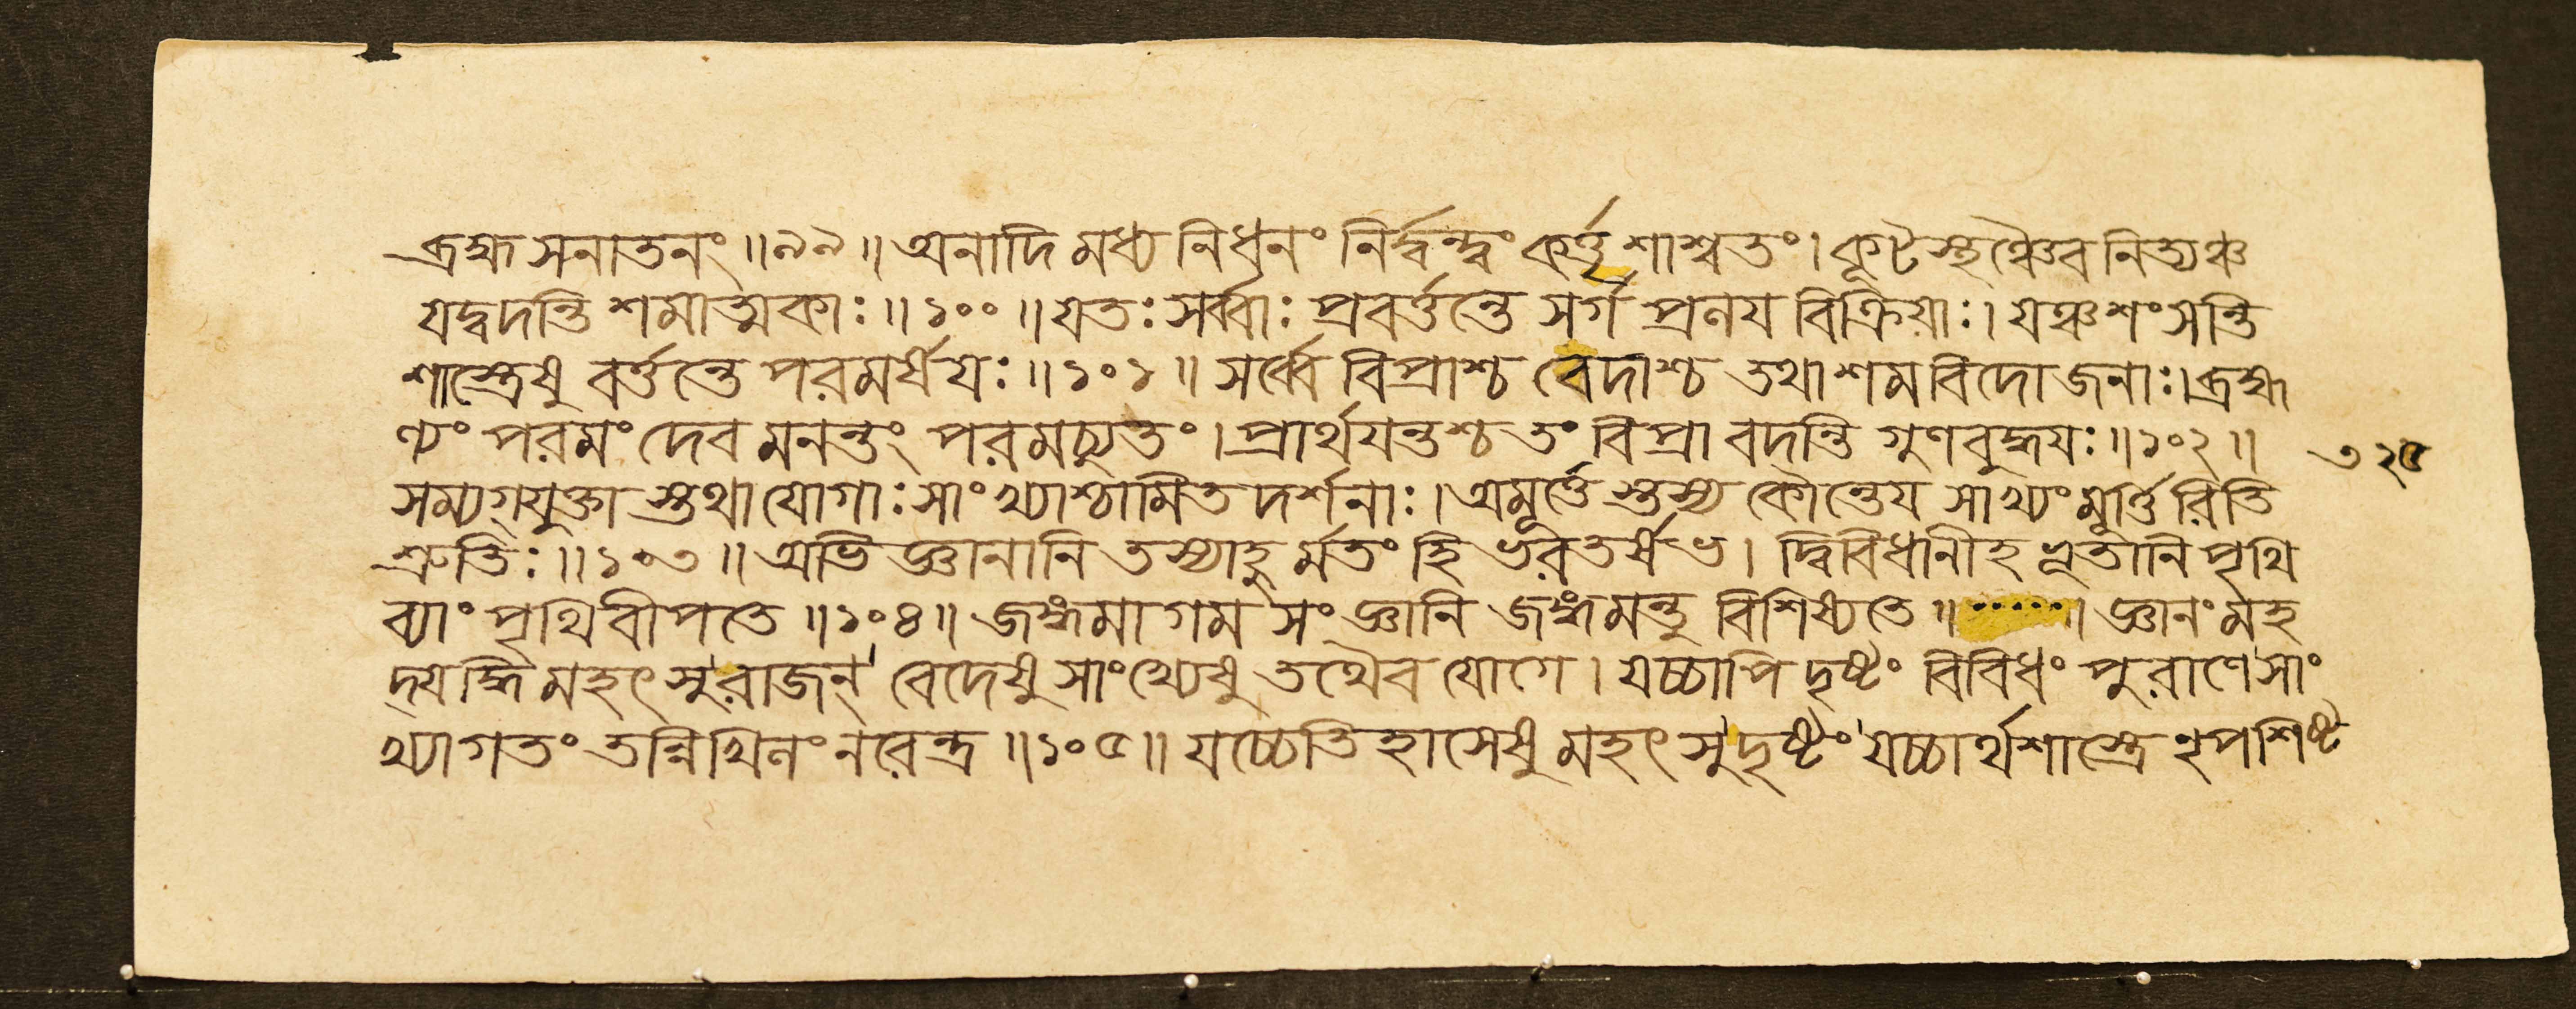 ব্রহ্ম সনাতনং ॥ ৯৯ ॥ অনাদি মধ্য নিধনং নির্দ্বন্দ্বং কর্ত্তৃ শাশ্বতং । কূটস্থঞ্চৈব নিত্যঞ্চ
যদ্বদন্তি শমাত্মকাঃ ॥ ১০০ ॥ যতঃ সর্ব্বাঃ প্রবর্ত্তন্তে সর্গ প্রলয় বিক্রিয়াঃ । যঞ্চ শংসন্তি
শাস্ত্রেষু বর্ত্তন্তে পরমর্ষয়ঃ ॥ ১০১ ॥ সর্ব্বে বিপ্রাশ্চ বেদাশ্চ তথা শমবিদো জনাঃ । ব্রহ্ম
ণ্যং পরমং দেব মনন্তং পরমচ্যুতং । প্রার্থয়ন্তশ্চ তং বিপ্রা বদন্তি গুণবুদ্ধয়ঃ ॥ ১০২ ॥ ৩২৫
সম্যগ্যুক্তা স্তথা যোগাঃ সাংখ্যাশ্চামিত দর্শনাঃ । অমূর্ত্তে স্তস্য কৌন্তেয় সাখ্যং মূর্ত্তি রিতি
শ্রুতিঃ ॥ ১০৩ ॥ অভি জ্ঞানানি তস্যাহু র্মতং হি ভরতর্ষভ । দ্বিবিধানীহ ভূতানি পৃথি
ব্যাং পৃথিবীপতে ॥ ১০৪ ॥ জঙ্গমাগম সংজ্ঞানি জঙ্গমন্তু বিশিষ্যতে ॥ ..... ॥ জ্ঞানং মহ
দ্যদ্ধি মহৎসু রাজন্ বেদেষু সাংখ্যেষু তথৈব যোগে । যচ্চাপি দৃষ্টং বিবিধং পুরাণে সাং
খ্যাগতং তন্নিখিলং নরেন্দ্র ॥ ১০৫ ॥ যচ্চেতিহাসেষু মহৎসু দৃষ্টং যচ্চার্থশাস্ত্রে নৃপ শিষ্ট